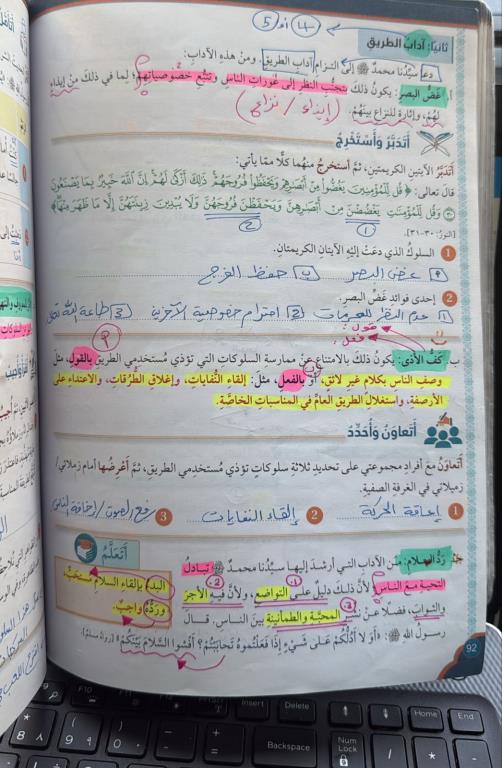 ثانيًا: آداب الطريق
٤ أو ٥
دعا سيّدنا محمد ﷺ إلى التزام آداب الطريق، ومن هذه الآداب:
أ. غضّ البصر: يكون ذلك بتجنّب النظر إلى عورات الناس وتتبّع خصوصياتهم؛ لما في ذلك من إيذاء
لهم، وإثارة للنزاع بينهم.
(إيذاء / نزاع)
أتدبّر وأستخرج
أتدبّر الآيتين الكريمتين، ثمّ أستخرج منهما كلًّا ممّا يأتي:
قال تعالى: ﴿قُل لِّلْمُؤْمِنِينَ يَغُضُّوا مِنْ أَبْصَارِهِمْ وَيَحْفَظُوا فُرُوجَهُمْ ذَلِكَ أَزْكَى لَهُمْ إِنَّ اللَّهَ خَبِيرٌ بِمَا يَصْنَعُونَ
وَقُل لِّلْمُؤْمِنَاتِ يَغْضُضْنَ مِنْ أَبْصَارِهِنَّ وَيَحْفَظْنَ فُرُوجَهُنَّ وَلَا يُبْدِينَ زِينَتَهُنَّ إِلَّا مَا ظَهَرَ مِنْهَا﴾
[النور: ٣٠-٣١].
1 2
1 السلوك الذي دعتْ إليه الآيتان الكريمتان.
أ غض البصر ب حفظ الفرج
2 إحدى فوائد غضّ البصر.
1 عدم النظر للمحرمات 2 احترام خصوصية الآخرين 3 طاعة الله
قول
فعل
ب. كفّ الأذى: يكون ذلك بالامتناع عن ممارسة السلوكات التي تؤذي مستخدمي الطريق بالقول، مثل
وصف الناس بكلام غير لائق، أو بالفعل، مثل: إلقاء النُّفايات، وإغلاق الطُّرقات، والاعتداء على
الأرصفة، واستغلال الطريق العامّ في المناسبات الخاصّة.
أتعاون وأحدّد
أتعاون مع أفراد مجموعتي على تحديد ثلاثة سلوكات تؤذي مستخدمي الطريق، ثمّ أعرضها أمام زملائي/
زميلاتي في الغرفة الصفية.
1 إعاقة الحركة 2 إلقاء النفايات 3 رفع الصوت / إخافة الناس
أتعلّم
البدء بإلقاء السلام مستحبّ،
وردّه واجب.
ردّ السلام: من الآداب التي أرشد إليها سيّدنا محمد ﷺ تبادل
التحية مع الناس؛ ولأنّ ذلك دليل على التواضع، ولأنّ فيه الأجر
والثواب، فضلًا عن نشر المحبّة والطمأنينة بين الناس. قال
رسول الله ﷺ: «أَوَ لا أدلّكم على شيء إذا فعلتموه تحاببتم؟ أفشوا السلام بينكم» [رواه مسلم].
92
F10
Insert
Delete
Home
End
Backspace
Num Lock